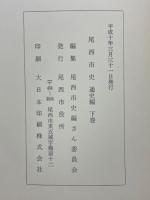 平成十年三月三十一日発行
尾西市史 通史編 下巻
編集 尾西市史編さん委員会
発行 尾西市役所
尾西市東五城字備前十二
印刷 大日本印刷株式会社